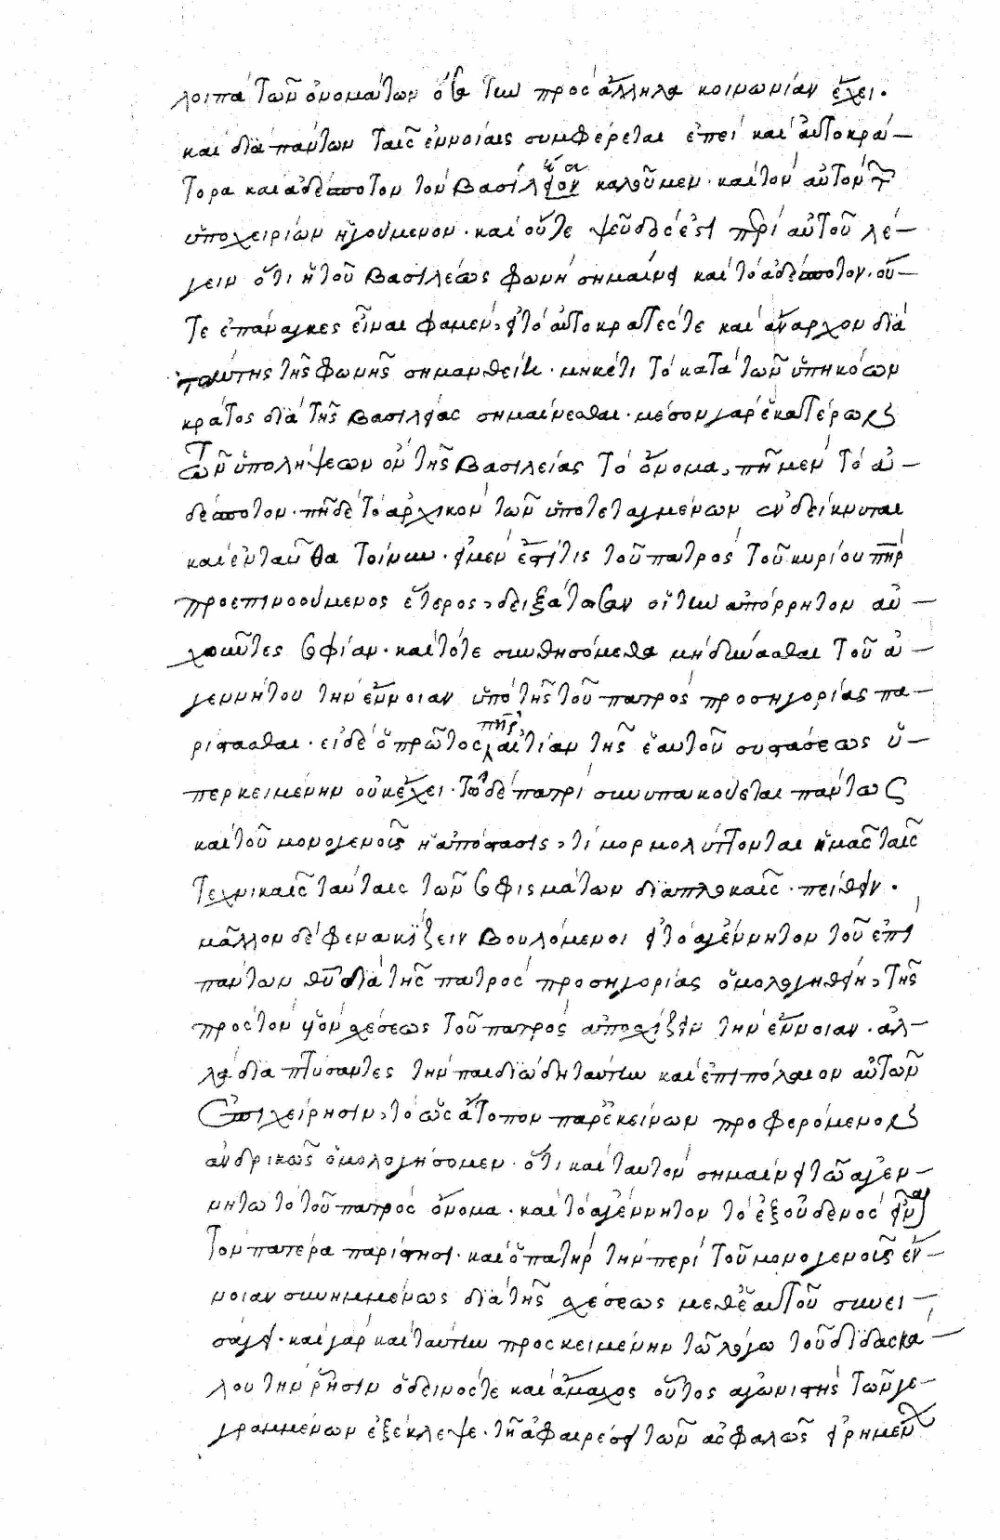 λοιπὰ τῶν ὀνομάτων ὅσα τὴν πρὸς ἄλληλα κοινωνίαν ἔχει·
καὶ διὰ πάντων ταῖς ἐννοίαις συμφέρεται ἐπεὶ καὶ αὐτοκρά-
τορα καὶ ἀδέσποτον τὸν βασιλέα καλοῦμεν· καὶ τὸν αὐτὸν τῶν
ὑποχειρίων ἡγούμενον· καὶ οὔτε ψεῦδός ἐστι περὶ αὐτοῦ λέ-
γειν ὅτι ἡ τοῦ βασιλέως φωνὴ σημαίνει καὶ τὸ ἀδέσποτον· οὔ-
τε ἐπάναγκες εἶναι φαμέν, εἰ τὸ αὐτοκρατές τε καὶ ἄναρχον διὰ
ταύτης τῆς φωνῆς σημανθείη· μηκέτι τὸ κατὰ τῶν ὑπηκόων
κράτος διὰ τῆς βασιλείας σημαίνεσθαι· μέσον γὰρ ἑκατέρων
τῶν ὑπολήψεων ὂν τῆς βασιλείας τὸ ὄνομα, πῆ μὲν τὸ ἀ-
δέσποτον· πῆ δὲ τὸ ἀρχικὸν τῶν ὑποτεταγμένων ἐνδείκνυται
καὶ ἐνταῦθα τοίνυν· εἰ μὲν ἐστί τις τοῦ πατρὸς τοῦ κυρίου πὴρ
προεπινοούμενος ἕτερος, δειξάτωσαν οἱ τὴν ἀπόρρητον αὐ-
χοῦντες σοφίαν· καὶ τότε συνθησόμεθα μὴ δύνασθαι τοῦ ἀ-
γεννήτου τὴν ἔννοιαν ὑπὸ τῆς τοῦ πατρὸς προσηγορίας πα-
ρίστασθαι· εἰ δὲ ὁ πρῶτος πὴρ αἰτίαν τῆς ἑαυτοῦ συστάσεως ὑ-
περκειμένην οὐκ ἔχει· τῶ δὲ πατρὶ συνυπακούεται πάντως
καὶ τοῦ μονογενοῦς ἡ ὑπόστασις, τί μορμολύττονται ἡμᾶς ταῖς
τεχνικαῖς ταύταις τῶν σοφισμάτων διαπλοκαῖς· πείθειν·
μᾶλλον δὲ φενακίζειν βουλόμενοι εἰ τὸ ἀγέννητον τοῦ ἐπὶ
πάντων θῦ διὰ τῆς πατρὸς προσηγορίας ὁμολογηθείη, τῆς
πρὸς τὸν υἱὸν σχέσεως τοῦ πατρὸς ἀποσχίζειν τὴν ἔννοιαν· ἀλ-
λὰ διαπτύσαντες τὴν παιδιώδη ταύτην καὶ ἐπιπόλαιον αὐτῶν
ἐπιχείρησιν, τὸ ὡς ἄτοπον παρ' ἐκείνων προφερόμενον
ἀνδρικῶς ὁμολογήσομεν· ὅτι καὶ ταυτὸν σημαίνει τῶ ἀγεν-
νήτω τὸ τοῦ πατρὸς ὄνομα· καὶ τὸ ἀγέννητον τὸ ἐξ οὐδενὸς εἶναι
τὸν πατέρα παρίστησι· καὶ ὁ πατὴρ τὴν περὶ τοῦ μονογενοῦς ἔν-
νοιαν συνημμένως διὰ τῆς σχέσεως μεθ' ἑαυτοῦ συνει-
σάγει· καὶ γὰρ καὶ ταύτην προσκειμένην τῶ λόγω τοῦ διδασκά-
λου τὴν ῥῆσιν ὁ δεινός τε καὶ ἄμαχος οὗτος ἀγωνιστὴς τῶν γε-
γραμμένων ἐξέκλεψε· τῆ ἀφαιρέσει τῶν ἀσφαλῶς εἰρημένων